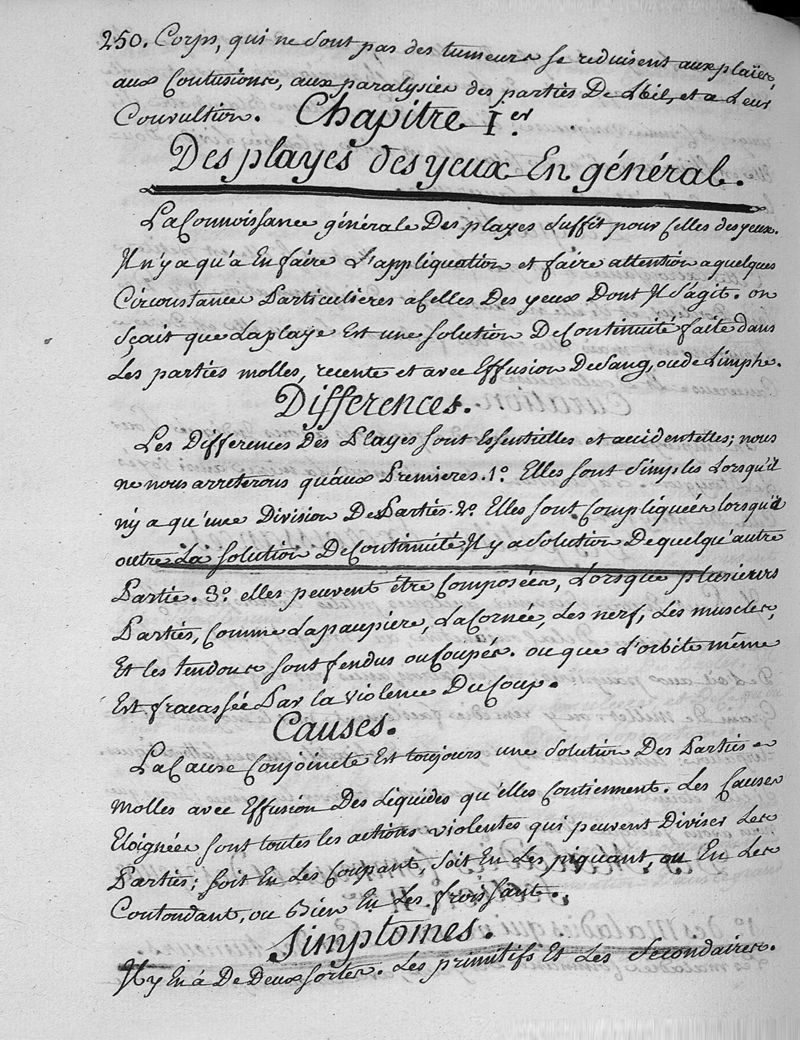 250. Corps, qui ne sont pas des tumeurs se reduisent aux playes,
aux Contusions, aux paralysies des parties De L'oeil, et a Leur
Convultion. Chapitre Ier
Des playes des yeux En général.
La Connoissance générale Des playes suffit pour Celles des yeux.
Il n'y a qu'a En faire L'appliquation et faire attention a quelques
Circonstances Particulieres a Celles Des yeux Dont Il s'agit. on
sçait que La playe Est une solution De Continuité faite dans
Les parties molles, recente et avec Effusion De sang, ou de Limphe.
Differences.
Les Differences Des Playes sont Essentielles et accidentelles; nous
ne nous arreterons qu'aux Premieres. 1º. Elles sont simples Lorsqu'il
n'y a qu'une Division De Parties. 2º. Elles sont Compliquées lorsqu'il
outre La solution De Continuité Il y a solution De quelqu'autre
Partie. 3º. elles peuvent être Composées, Lorsque plusieurs
Parties, Comme La paupière, La Cornée, Les nerf, Les muscles,
Et les tendons sont fendus ou Coupés. ou que L'orbite même
Est fracassée Par la violence Du Coup.
Causes.
La Cause Conjointe Est toujours une solution Des Parties
molles avec Effusion Des Liquides qu'elles Contiennent. Les Causes
Eloignées sont toutes les actions violentes qui peuvent Diviser Les
Parties; soit En Les Coupant, soit En Les piquant, ou En Les
Contondant, ou Bien En Les froissant.
Simptomes.
Il y En à De Deux sortes. Les primitifs Et Les Secondaires.